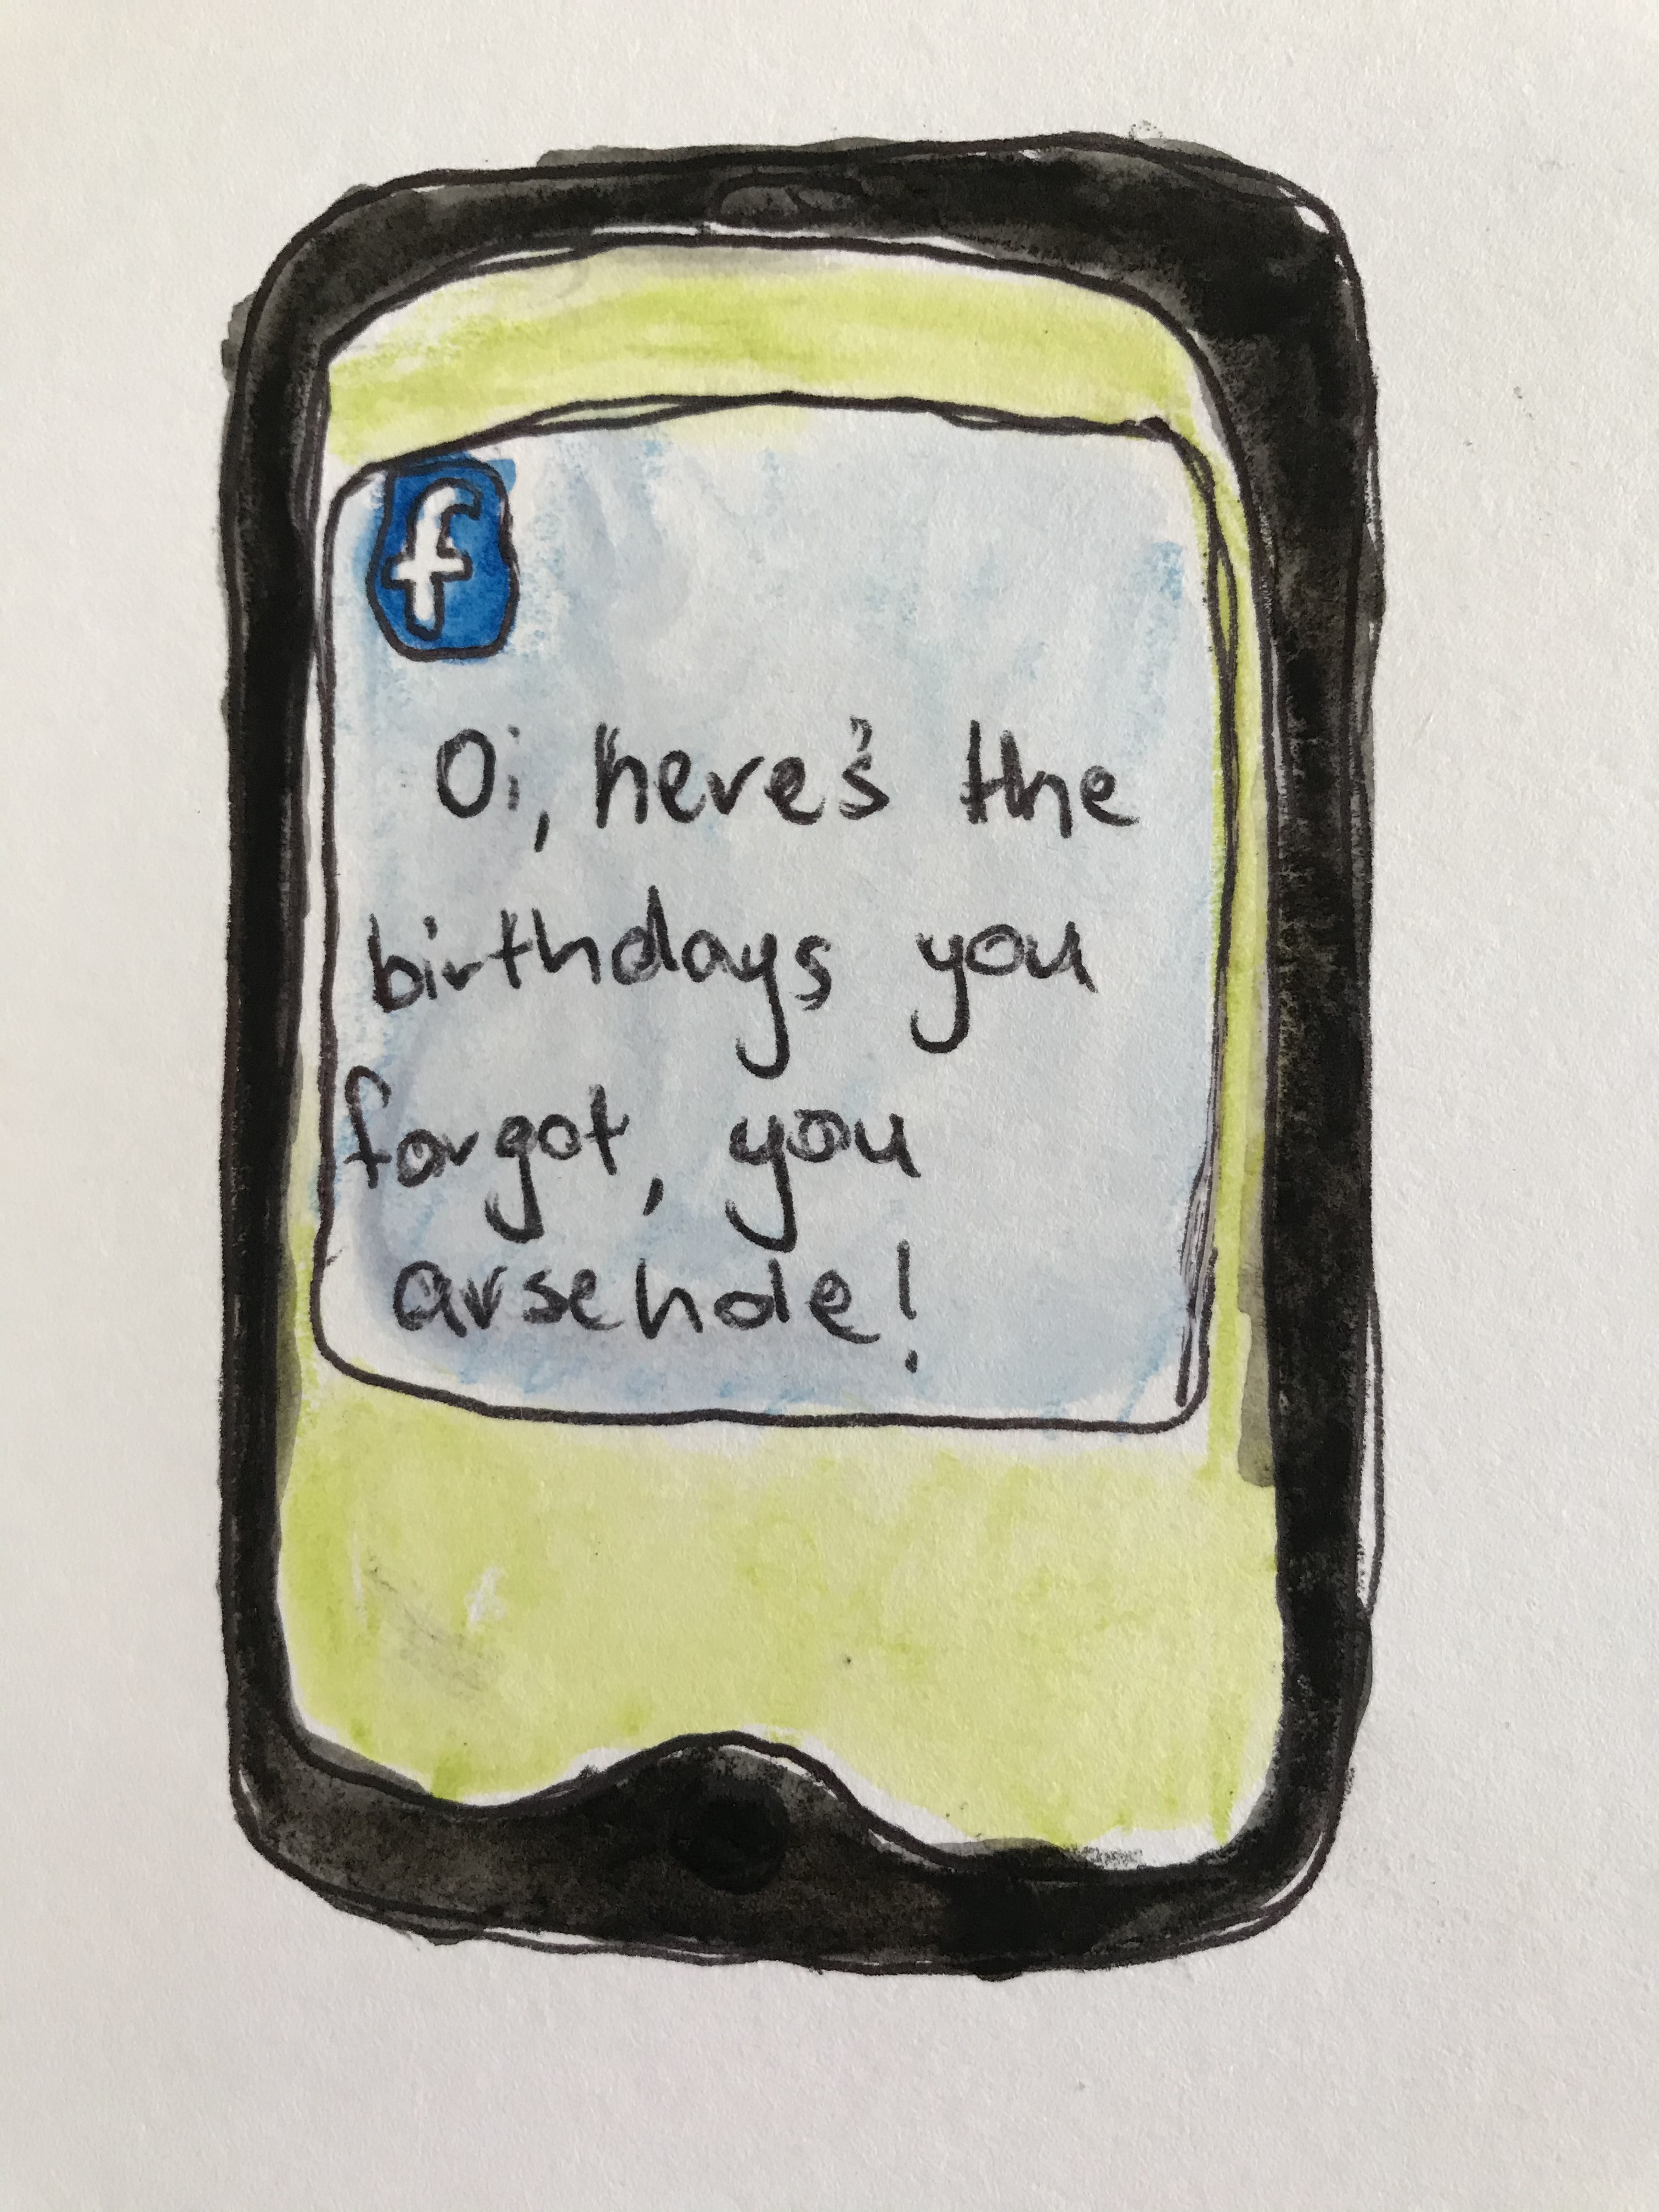 f
Oi, here's the
birthdays you
forgot, you
arsehole!